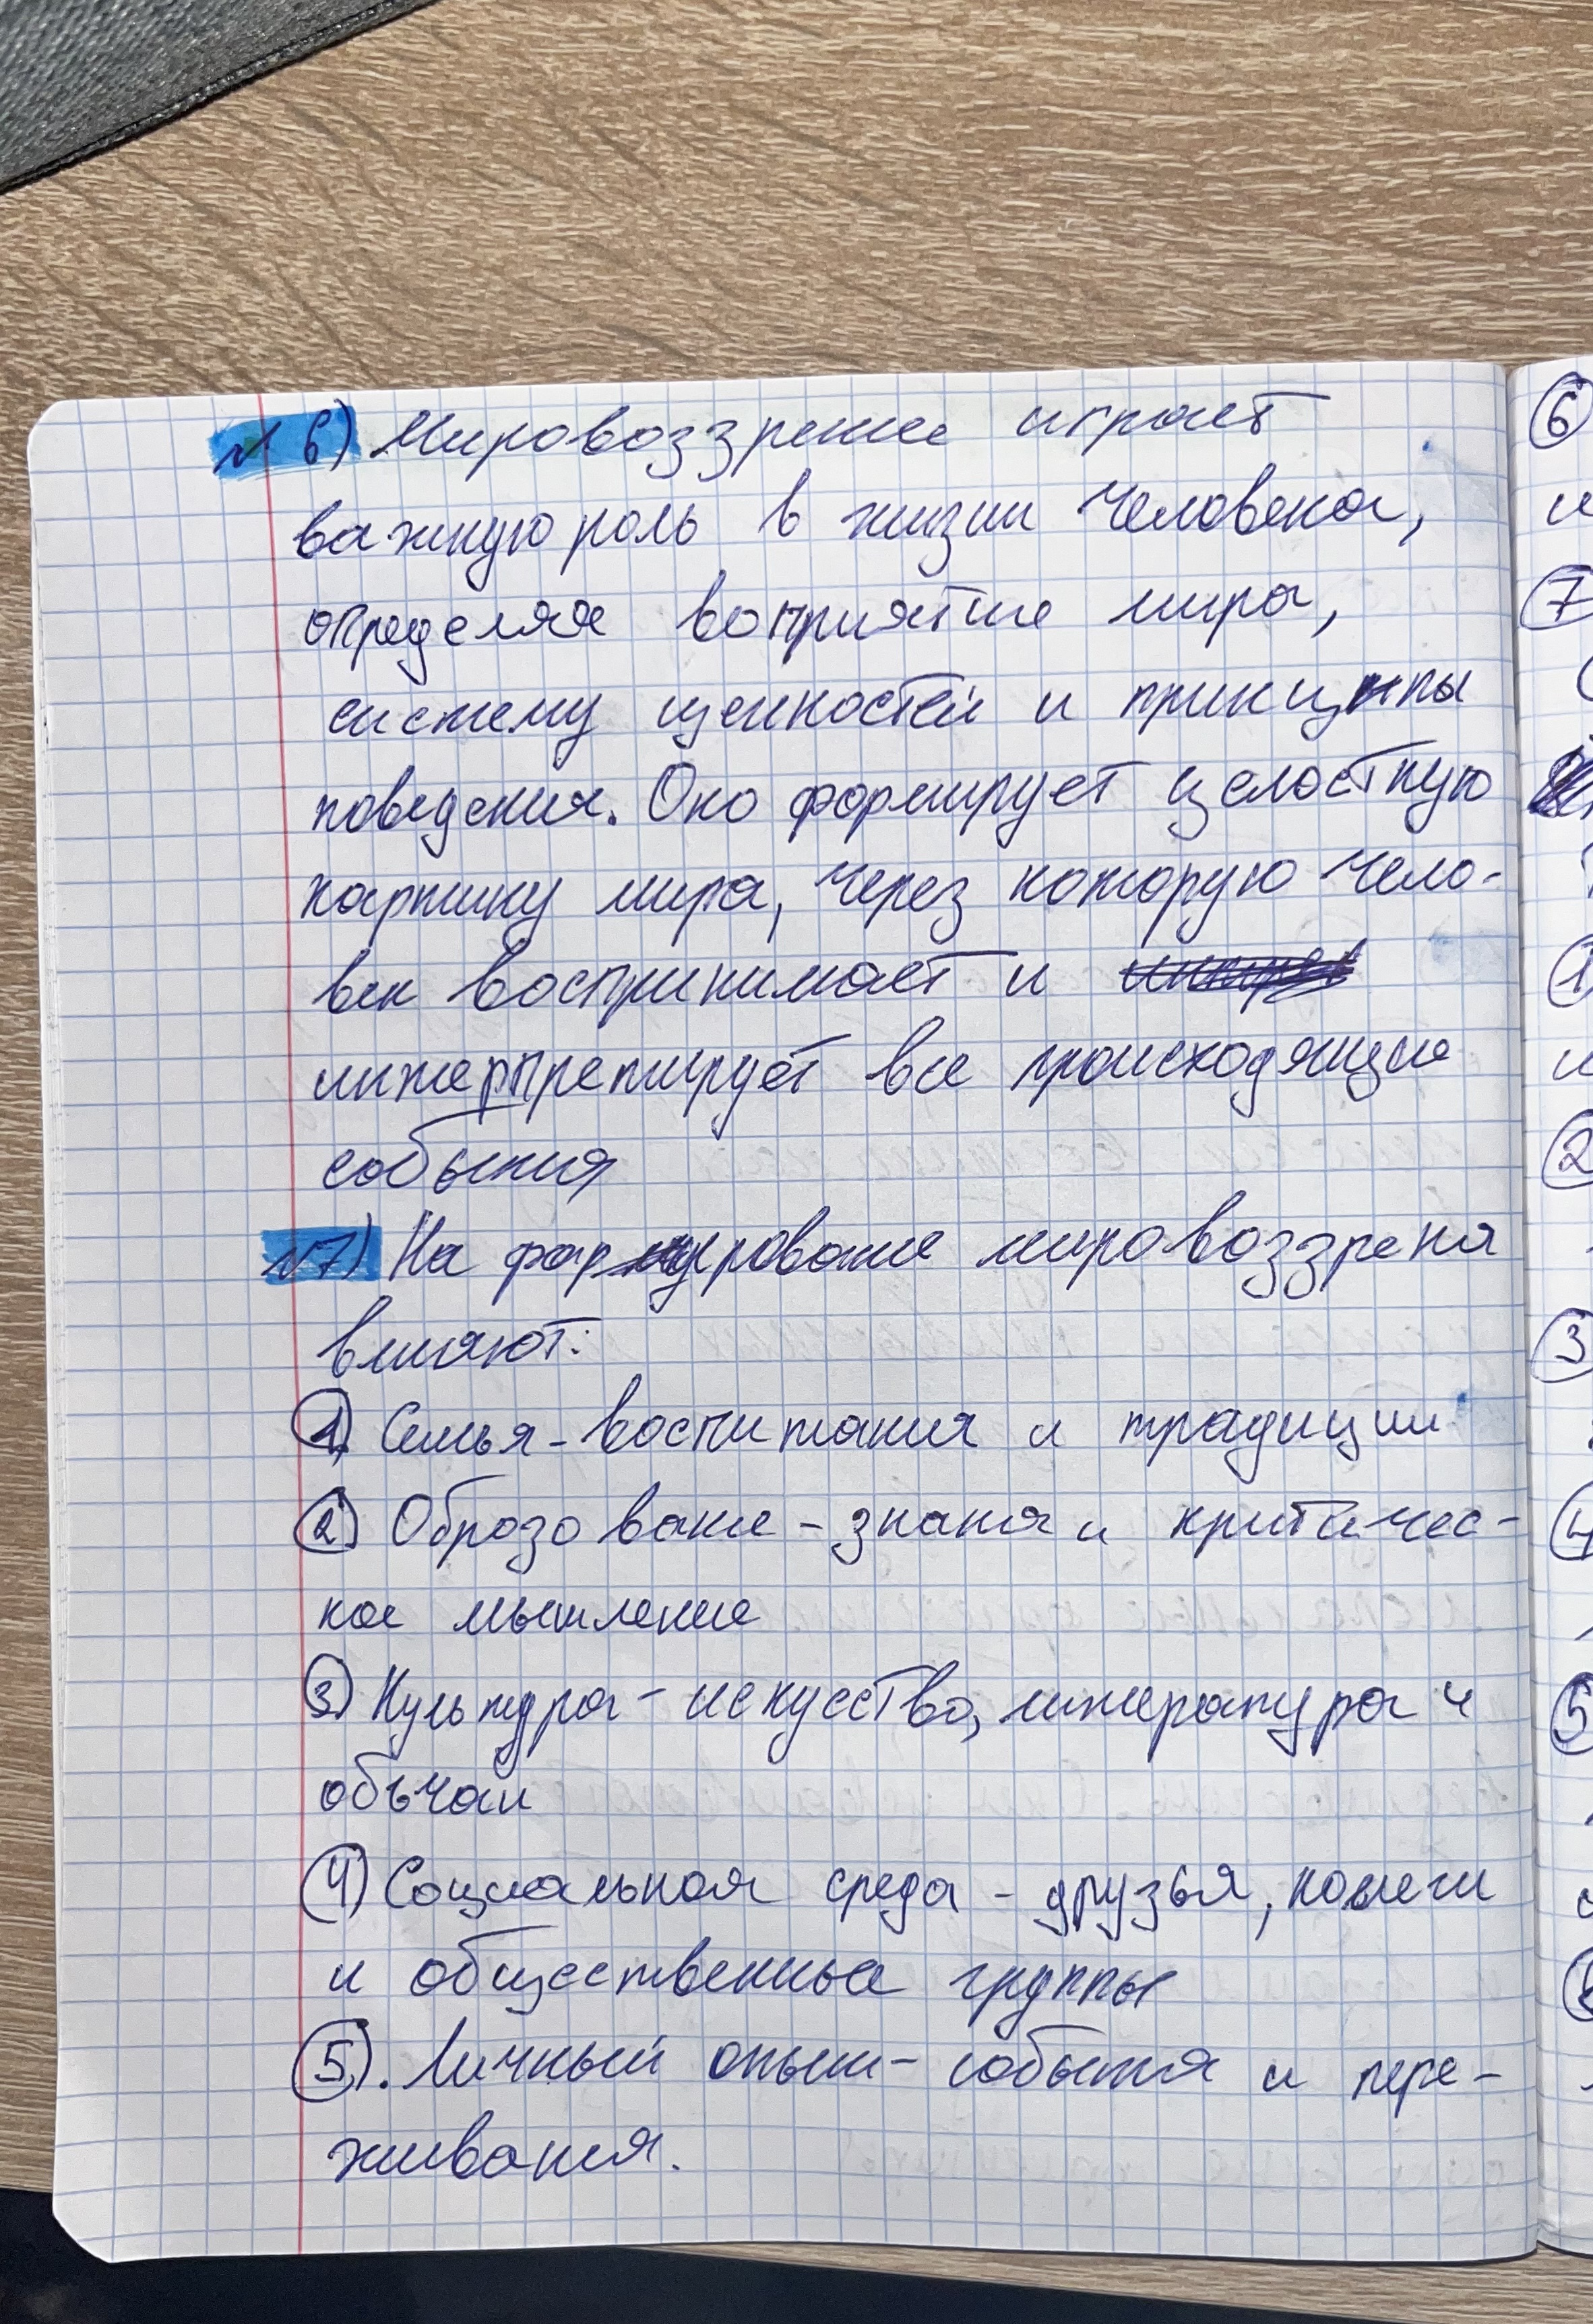 №6) Мировоззрение играет
важную роль в жизни человека,
определяя вопприятие мира,
систему ценностей и принципы
поведения. Оно формирует целостную
картину мира, через которую чело-
век воспринимает и
интерпретирует все происходящие
события
№7) На формирование мировоззрена
влияют:
1) Семья - воспитания и традиции
2) Образование - знания и критичес-
кое мышление
3) Культура - искусство, литература и
обычаи
4) Социальная среда - друзья, коллеги
и общественные группы
5). Личный опыт - события и пере-
живания.
6
и
7
1
и
2
3
4
5